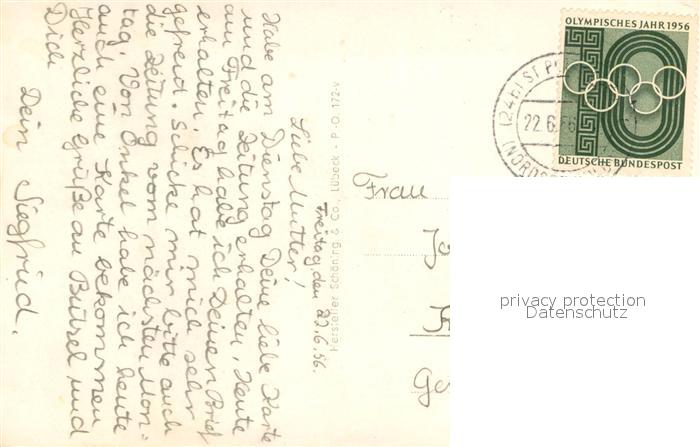 Freitag, den 22.6.56.
Liebe Mutter!
Habe am Dienstag Deine liebe Karte
und die Zeitung erhalten. Heute
am Freitag habe ich Deinen Brief
erhalten. Es hat mich sehr
gefreut. Schicke mir bitte auch
die Zeitung vom nächsten Mon=
tag. Von Onkel habe ich heute
auch eine Karte bekommen
Herzliche Grüße an Bützel und
Dich
Dein Siegfried.
Hersteller Schöning & Co., Lübeck - P.O. 172v
Frau
OLYMPISCHES JAHR 1956
DEUTSCHE BUNDESPOST
(24b) ST P
22.6.56
(NORDS
privacy protection
Datenschutz